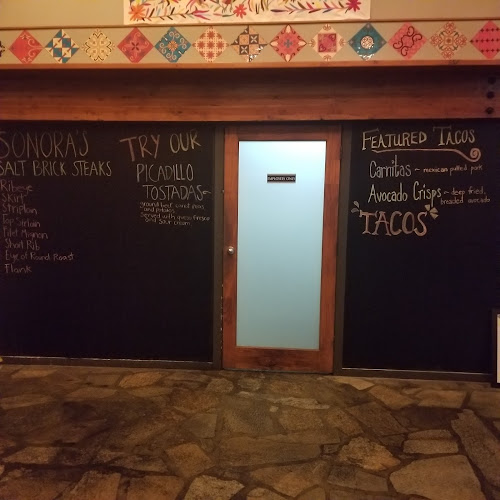 SONORA'S
SALT BRICK STEAKS
Ribeye
Skirt
Striploin
Top Sirloin
Filet Mignon
Short Rib
Eye of Round Roast
Flank
TRY OUR
PICADILLO
TOSTADAS
ground beef,
and potatoes
Served with queso fresco
and sour cream
EMPLOYEES ONLY
FEATURED TACOS
Carnitas - mexican pulled pork
Avocado Crisps - deep fried,
breaded avocado
TACOS